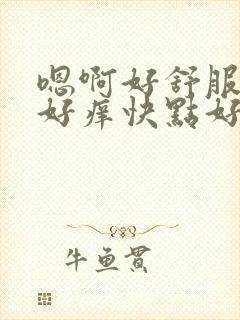 嗯啊好舒服
好痒快點好
牛鱼贯